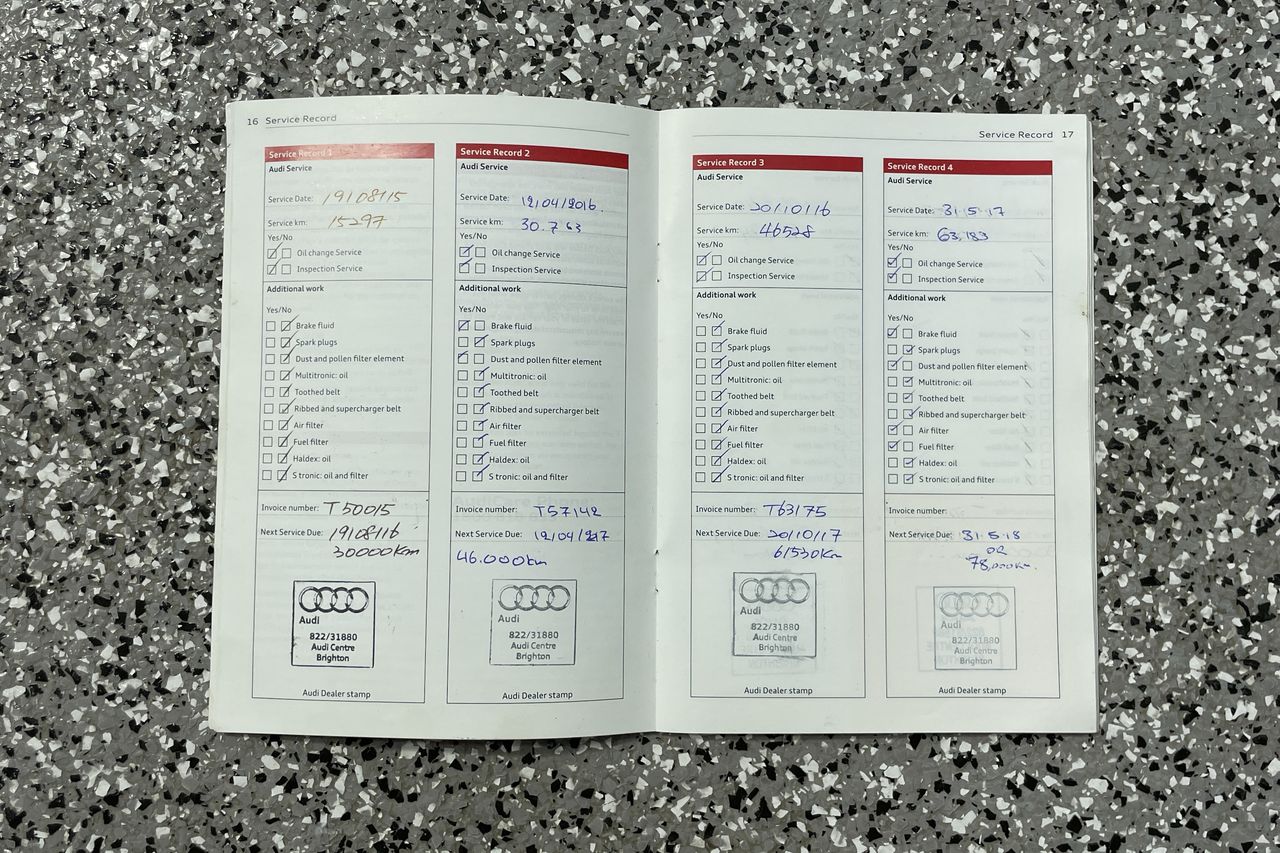 16 Service Record
Service Record 1
Audi Service
Service Date: 19/08/15
Service km: 15297
Yes/No
Oil change Service
Inspection Service
Additional work
Yes/No
Brake fluid
Spark plugs
Dust and pollen filter element
Multitronic: oil
Toothed belt
Ribbed and supercharger belt
Air filter
Fuel filter
Haldex: oil
S tronic: oil and filter
Invoice number: T50015
Next Service Due: 19/08/16
30000Km
Audi
822/31880
Audi Centre
Brighton
Audi Dealer stamp
Service Record 2
Audi Service
Service Date: 12/04/2016.
Service km: 30.763
Yes/No
Oil change Service
Inspection Service
Additional work
Yes/No
Brake fluid
Spark plugs
Dust and pollen filter element
Multitronic: oil
Toothed belt
Ribbed and supercharger belt
Air filter
Fuel filter
Haldex: oil
S tronic: oil and filter
Invoice number: T57142
Next Service Due:
46.000km
Audi
822/31880
Audi Centre
Brighton
Audi Dealer stamp
Service Record 17
Service Record 3
Audi Service
Service Date: 20/10/16
Service km: 46528
Yes/No
Oil change Service
Inspection Service
Additional work
Yes/No
Brake fluid
Spark plugs
Dust and pollen filter element
Multitronic: oil
Toothed belt
Ribbed and supercharger belt
Air filter
Fuel filter
Haldex: oil
S tronic: oil and filter
Invoice number: T63175
Next Service Due: 20/10/17
61530Km
Audi
822/31880
Audi Centre
Brighton
Audi Dealer stamp
Service Record 4
Audi Service
Service Date: 31.5.17
Service km: 63,183
Yes/No
Oil change Service
Inspection Service
Additional work
Yes/No
Brake fluid
Spark plugs
Dust and pollen filter element
Multitronic: oil
Toothed belt
Ribbed and supercharger belt
Air filter
Fuel filter
Haldex: oil
S tronic: oil and filter
Invoice number:
Next Service Due: 31.5.18
OR
78,000km.
Audi
822/31880
Audi Centre
Brighton
Audi Dealer stamp